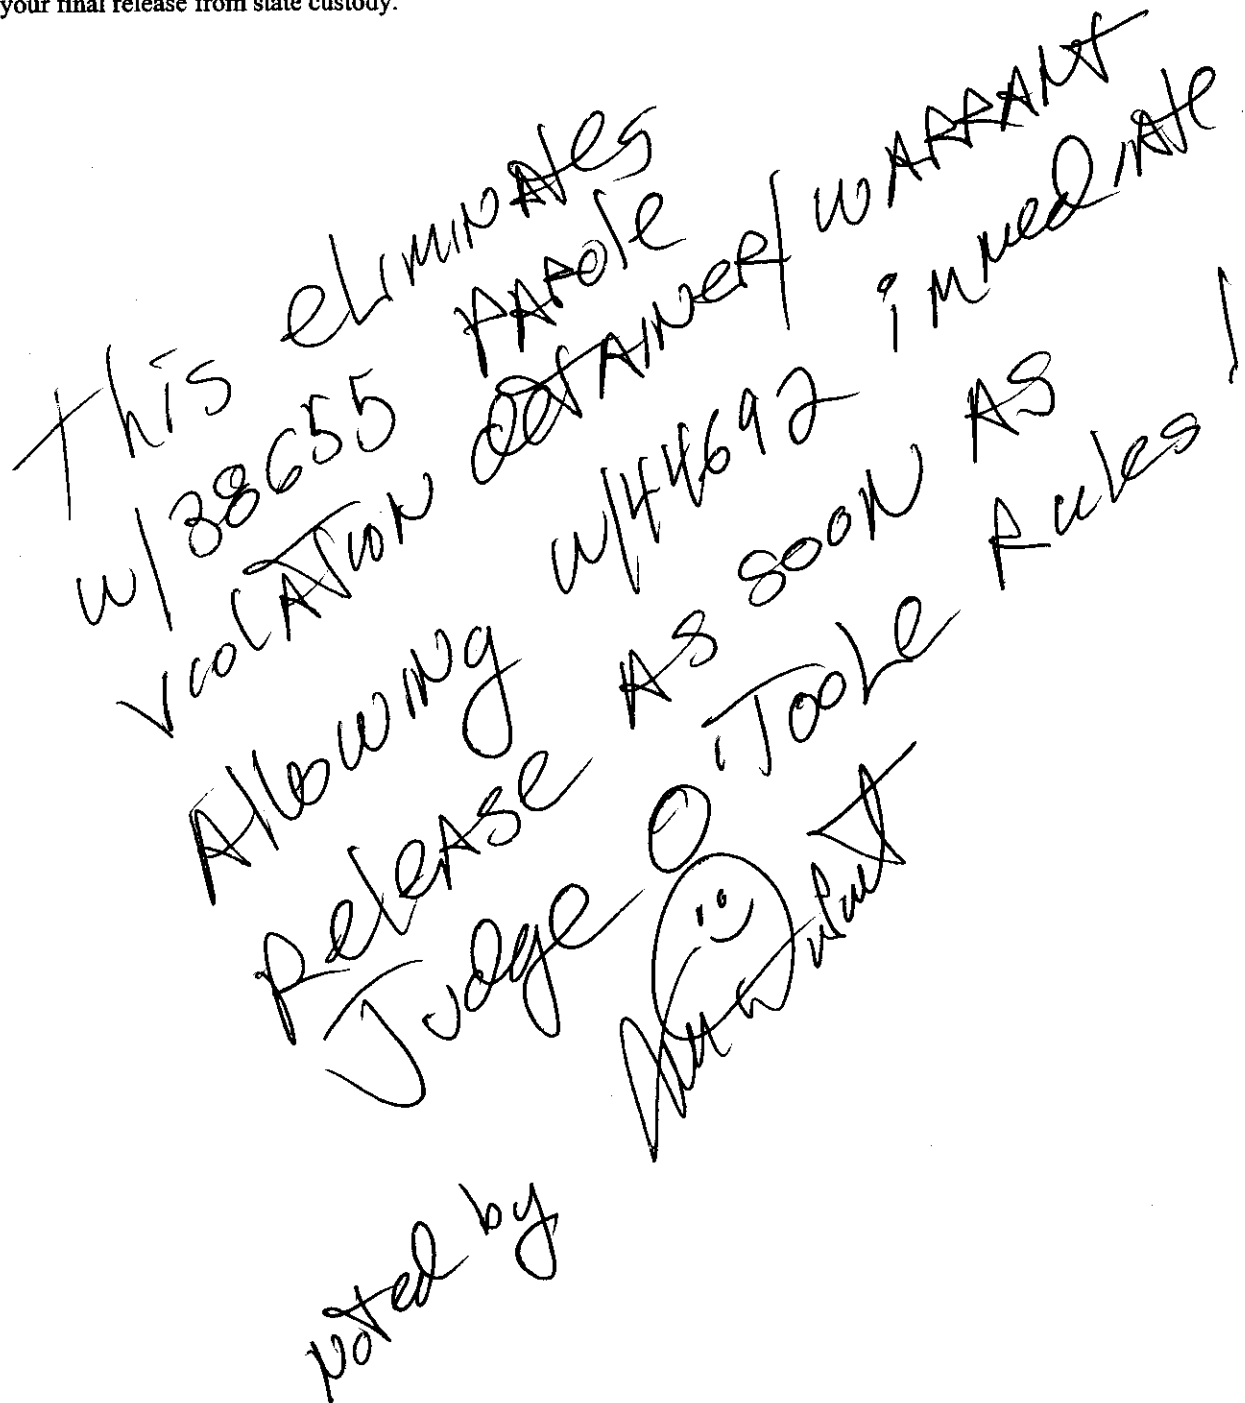 your final release from state custody.
This eliminates
W/38655 PAROLE
VIOLATION DETAINER/WARRANT
Allowing W/44692 immediate
Release AS SOON AS
Judge O'Toole Rules!
Noted by